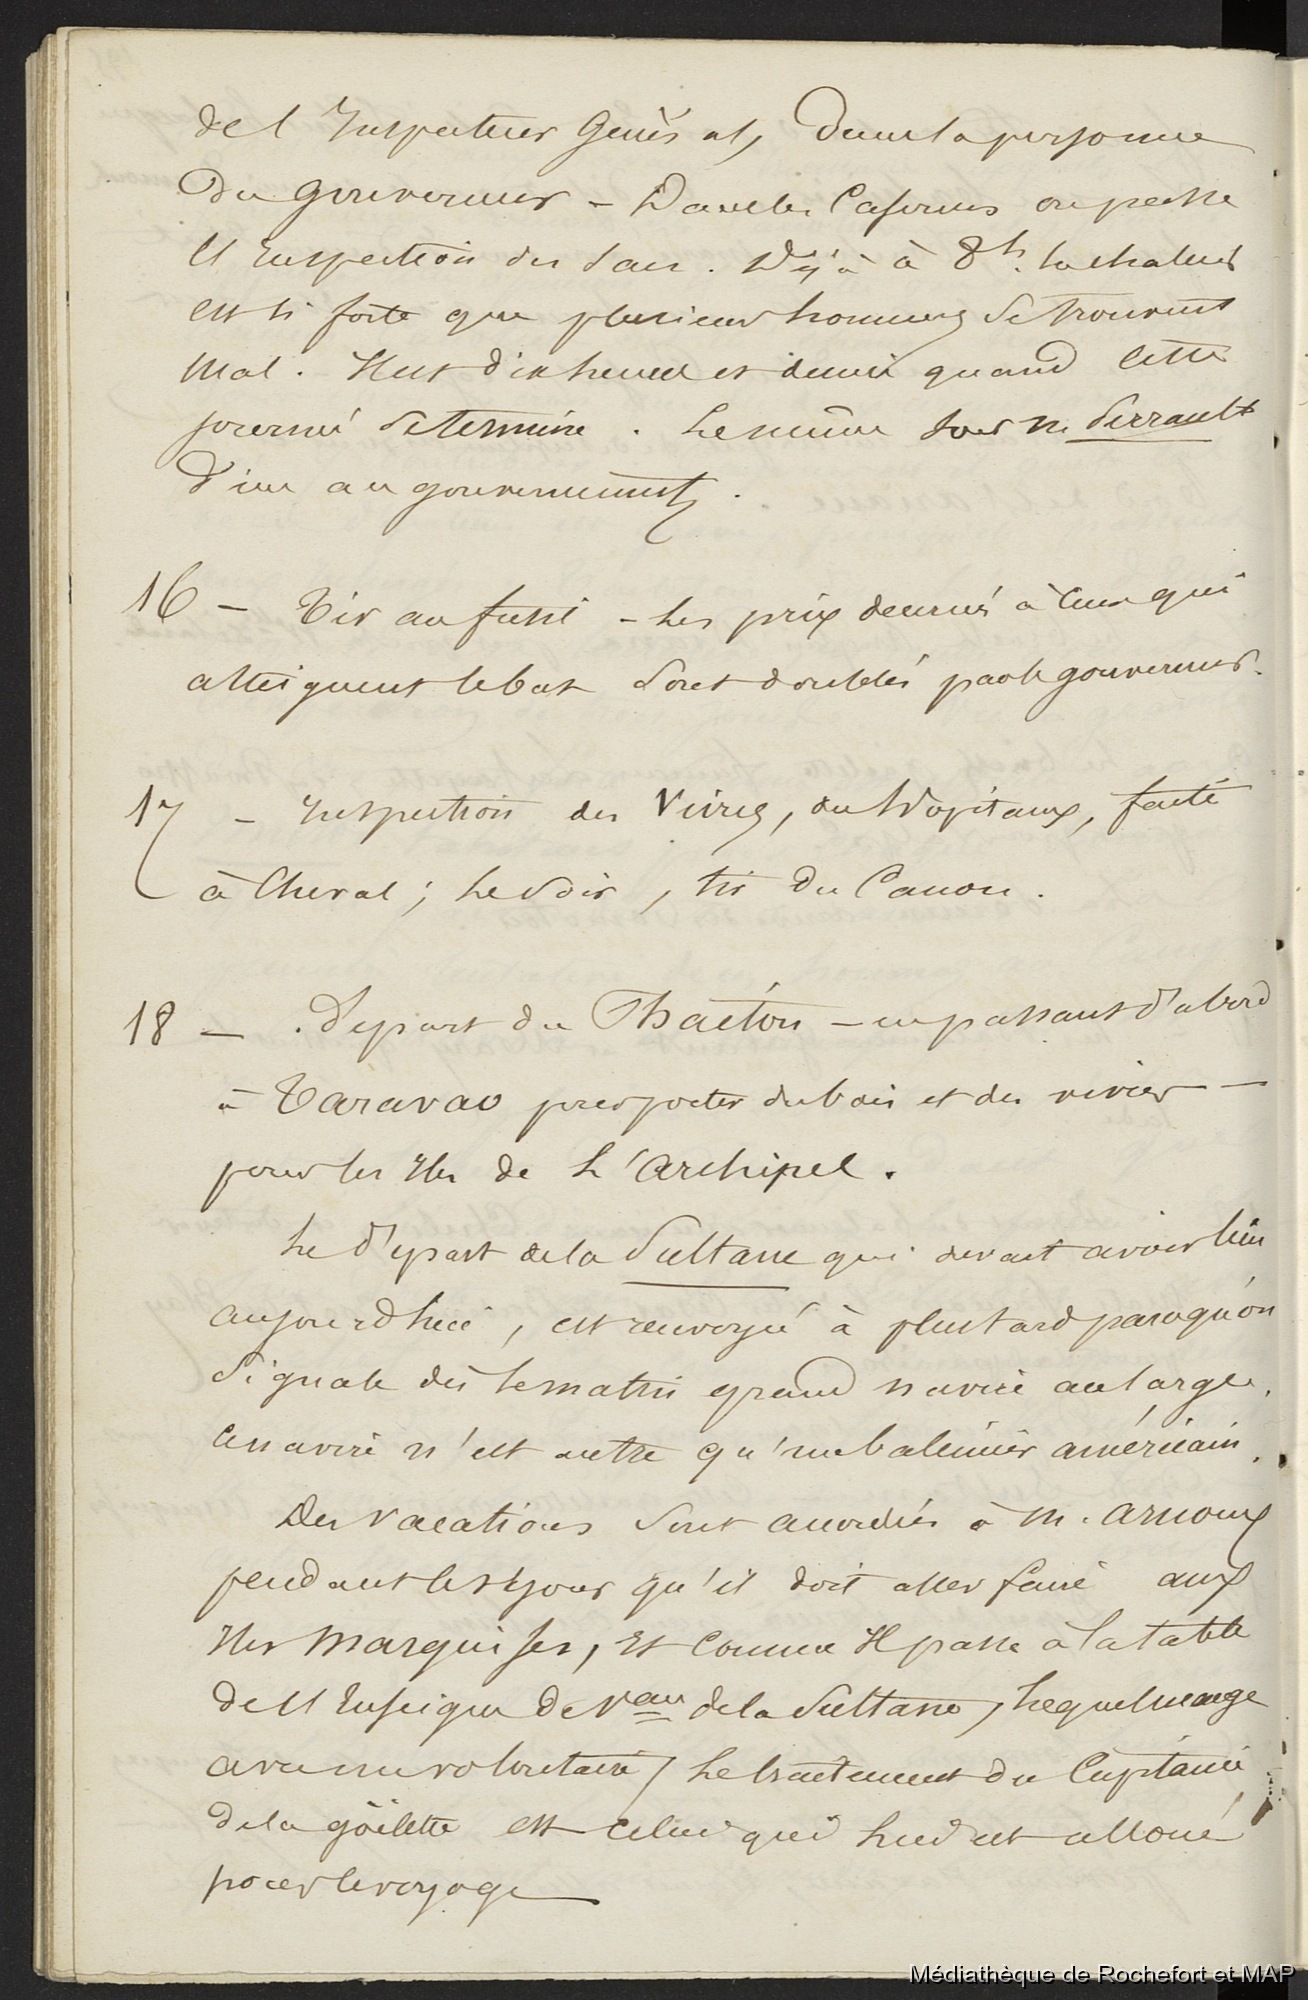 de l'Inspecteur Général, dans la personne
Du gouverneur – Dans les Casernes on passe
l'Inspection des sacs. Déjà à 8h. la chaleur
est si forte que plusieurs hommes se trouvent
mal. Il est dix heures et demie quand cette
journée se termine. Le même soir M. Perrault
Dîne au gouvernement.
16 – Tir au fusil – les prix donnés à ceux qui
atteignent le but sont doublés par le gouverneur.
17 – Inspection des Vivres, des Hopitaux, faite
à Cheval ; le soir, tir du Canon.
18 – Départ du Phaéton – en passant d'abord
à Taravao pour porter du bois et des vivres –
pour les Iles de L'Archipel.
Le départ de la Sultane qui devait avoir lieu
aujourd'hui, est renvoyé à plus tard parcequ'on
signale dès le matin grand navire au large.
Ce navire n'est autre qu'un baleinier américain.
Des vacations sont accordées à M. Arnoux
pendant le séjour qu'il doit aller faire aux
Iles Marquises, et comme Il passe à la table
de l'Enseigne De Vau de la Sultane, lequel mange
avec un volontaire, le traitement du Capitaine
de la goëlette est celui qui lui est alloué
pour le voyage
Médiathèque de Rochefort et MAP